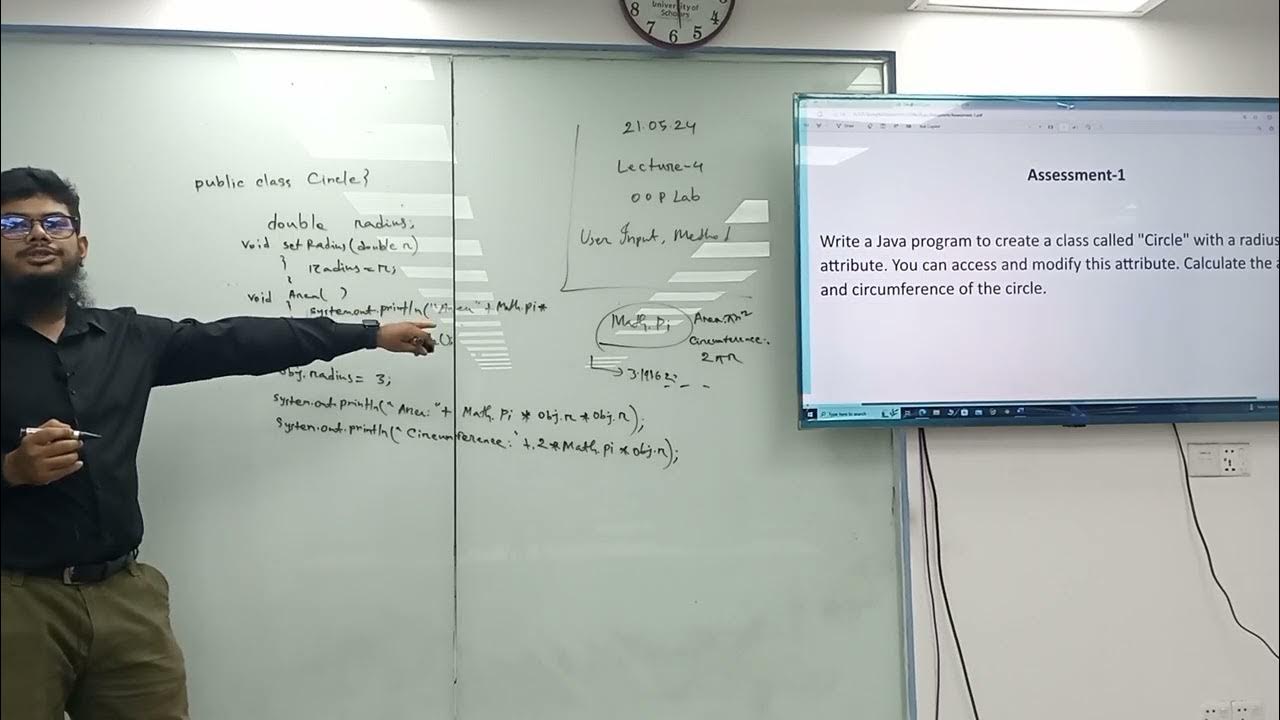 8
7
6
5
4
University of
Scholars
21.05.24
Lecture-4
OOP Lab
User Input, Method
public class Circle}
double radius;
void setRadius(double r)
{ Radius = r;
void Area( )
{ System.out.println("Area" + Math.pi*
obj.radius = 3;
System.out.println("Area:" + Math.Pi * obj.r * obj.r);
System.out.println("Circumference:" + 2*Math.pi * obj.r);
Math.Pi
Area: πr²
Circumference:
2πr
Assessment-1
Write a Java program to create a class called "Circle" with a radius
attribute. You can access and modify this attribute. Calculate the a
and circumference of the circle.
Type here to search